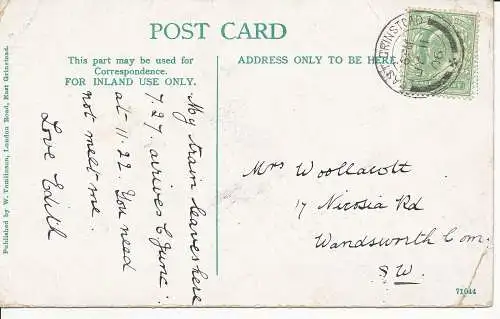 POST CARD
This part may be used for
Correspondence.
FOR INLAND USE ONLY.
ADDRESS ONLY TO BE HERE.
EAST GRINSTEAD
My train leaves here
7.27. arrives C Junc:
at 11.22. You need
not meet me.
Love Edith
Mrs Woollacott
17 Nicosia Rd
Wandsworth Com.
S.W.
71044
Published by W. Tomlinson, London Road, East Grinstead.